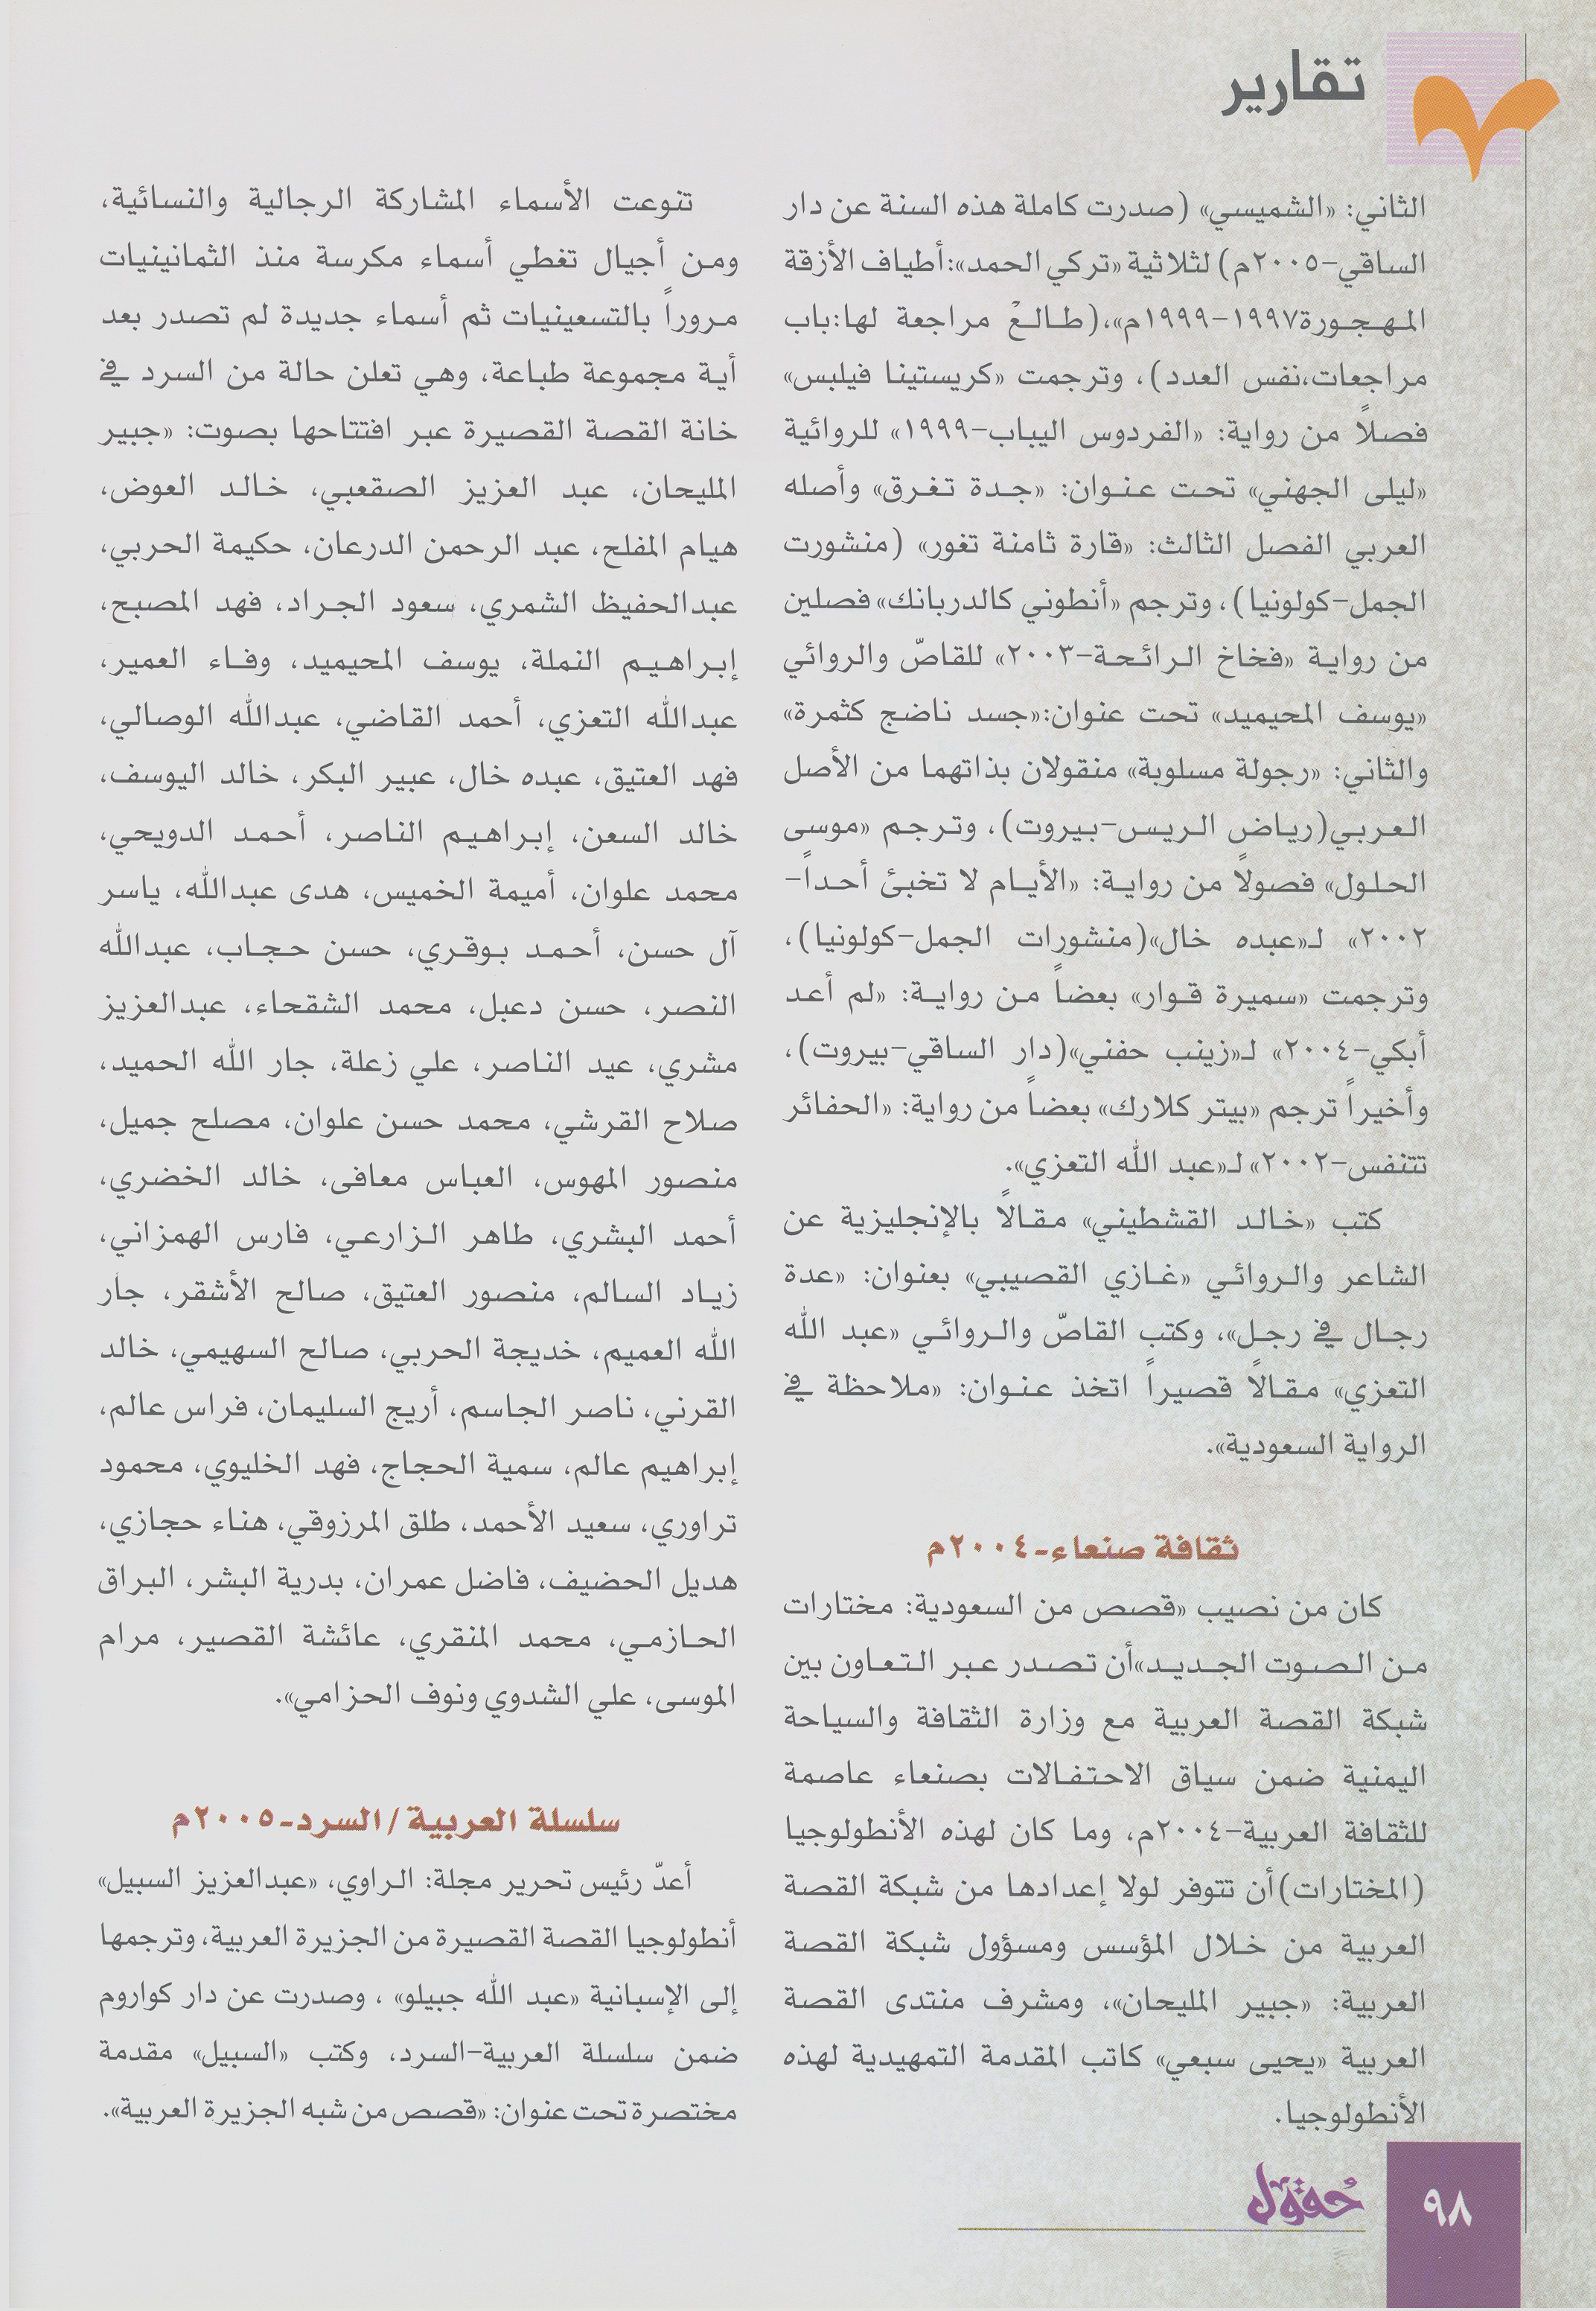 تقارير
الثاني: «الشميسي» (صدرت كاملة هذه السنة عن دار
الساقي-٢٠٠٥م) لثلاثية «تركي الحمد»:أطياف الأزقة
المهجورة١٩٩٧-١٩٩٩م»،(طالعْ مراجعة لها:باب
مراجعات،نفس العدد)، وترجمت «كريستينا فيلبس»
فصلاً من رواية: «الفردوس اليباب-١٩٩٩» للروائية
«ليلى الجهني» تحت عنوان: «جدة تغرق» وأصله
العربي الفصل الثالث: «قارة ثامنة تغور» (منشورت
الجمل-كولونيا)، وترجم «أنطوني كالدربانك» فصلين
من رواية «فخاخ الرائحة-٢٠٠٣» للقاصّ والروائي
«يوسف المحيميد» تحت عنوان:«جسد ناضج كثمرة»
والثاني: «رجولة مسلوبة» منقولان بذاتهما من الأصل
العربي(رياض الريس-بيروت)، وترجم «موسى
الحلول» فصولاً من رواية: «الأيام لا تخبئ أحداً-
٢٠٠٢» لـ«عبده خال»(منشورات الجمل-كولونيا)،
وترجمت «سميرة قوار» بعضاً من رواية: «لم أعد
أبكي-٢٠٠٤» لـ«زينب حفني»(دار الساقي-بيروت)،
وأخيراً ترجم «بيتر كلارك» بعضاً من رواية: «الحفائر
تتنفس-٢٠٠٢» لـ«عبد الله التعزي».
كتب «خالد القشطيني» مقالاً بالإنجليزية عن
الشاعر والروائي «غازي القصيبي» بعنوان: «عدة
رجال في رجل»، وكتب القاصّ والروائي «عبد الله
التعزي» مقالاً قصيراً اتخذ عنوان: «ملاحظة في
الرواية السعودية».
ثقافة صنعاء-٢٠٠٤م
كان من نصيب «قصص من السعودية: مختارات
من الصوت الجديد»أن تصدر عبر التعاون بين
شبكة القصة العربية مع وزارة الثقافة والسياحة
اليمنية ضمن سياق الاحتفالات بصنعاء عاصمة
للثقافة العربية-٢٠٠٤م، وما كان لهذه الأنطولوجيا
(المختارات)أن تتوفر لولا إعدادها من شبكة القصة
العربية من خلال المؤسس ومسؤول شبكة القصة
العربية: «جبير المليحان»، ومشرف منتدى القصة
العربية «يحيى سبعي» كاتب المقدمة التمهيدية لهذه
الأنطولوجيا.
تنوعت الأسماء المشاركة الرجالية والنسائية،
ومن أجيال تغطي أسماء مكرسة منذ الثمانينيات
مروراً بالتسعينيات ثم أسماء جديدة لم تصدر بعد
أية مجموعة طباعة، وهي تعلن حالة من السرد في
خانة القصة القصيرة عبر افتتاحها بصوت: «جبير
المليحان، عبد العزيز الصقعبي، خالد العوض،
هيام المفلح، عبد الرحمن الدرعان، حكيمة الحربي،
عبدالحفيظ الشمري، سعود الجراد، فهد المصبح،
إبراهيم النملة، يوسف المحيميد، وفاء العمير،
عبدالله التعزي، أحمد القاضي، عبدالله الوصالي،
فهد العتيق، عبده خال، عبير البكر، خالد اليوسف،
خالد السعن، إبراهيم الناصر، أحمد الدويحي،
محمد علوان، أميمة الخميس، هدى عبدالله، ياسر
آل حسن، أحمد بوقري، حسن حجاب، عبدالله
النصر، حسن دعبل، محمد الشقحاء، عبدالعزيز
مشري، عيد الناصر، علي زعلة، جار الله الحميد،
صلاح القرشي، محمد حسن علوان، مصلح جميل،
منصور المهوس، العباس معافى، خالد الخضري،
أحمد البشري، طاهر الزارعي، فارس الهمزاني،
زياد السالم، منصور العتيق، صالح الأشقر، جار
الله العميم، خديجة الحربي، صالح السهيمي، خالد
القرني، ناصر الجاسم، أريج السليمان، فراس عالم،
إبراهيم عالم، سمية الحجاج، فهد الخليوي، محمود
تراوري، سعيد الأحمد، طلق المرزوقي، هناء حجازي،
هديل الحضيف، فاضل عمران، بدرية البشر، البراق
الحازمي، محمد المنقري، عائشة القصير، مرام
الموسى، علي الشدوي ونوف الحزامي».
سلسلة العربية/السرد-٢٠٠٥م
أعدّ رئيس تحرير مجلة: الراوي، «عبدالعزيز السبيل»
أنطولوجيا القصة القصيرة من الجزيرة العربية، وترجمها
إلى الإسبانية «عبد الله جبيلو» ، وصدرت عن دار كواروم
ضمن سلسلة العربية-السرد، وكتب «السبيل» مقدمة
مختصرة تحت عنوان: «قصص من شبه الجزيرة العربية».
حقول
٩٨